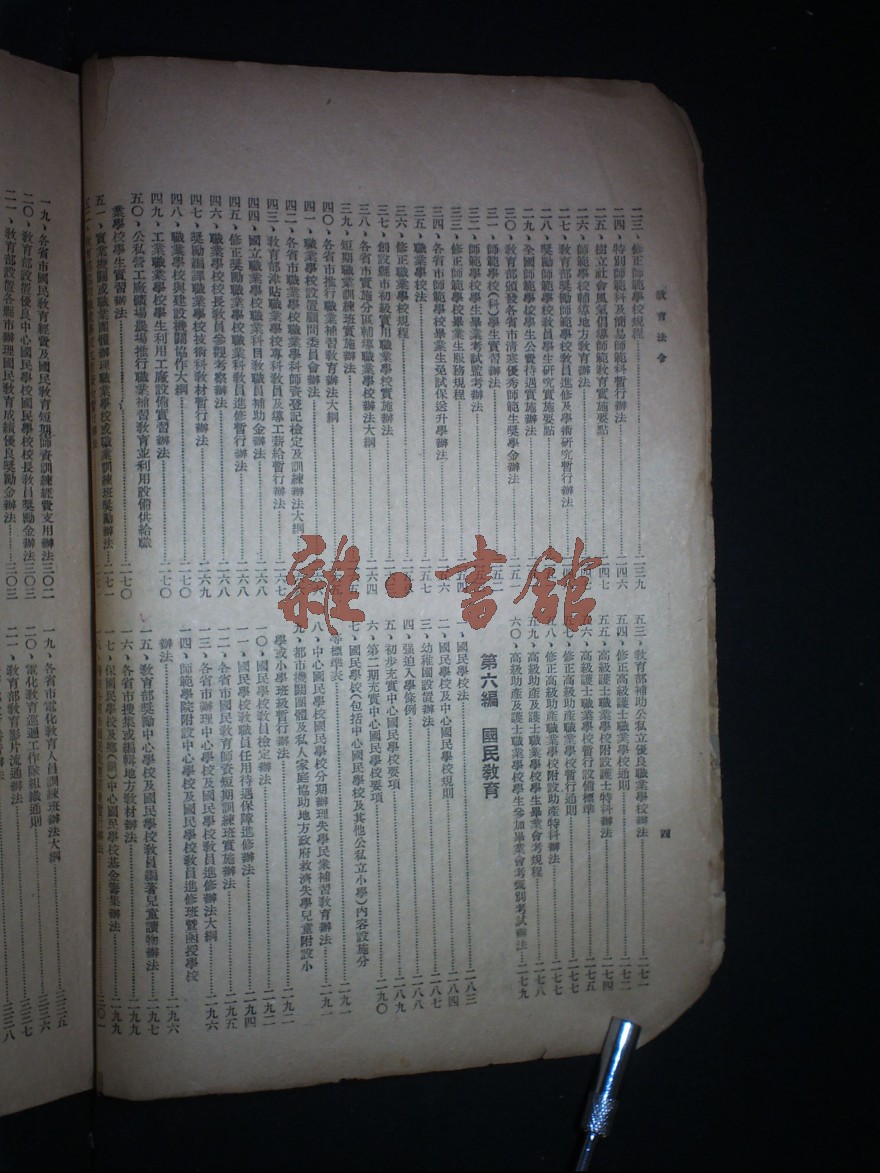 教育法令
二三、修正師範學校規程……一三九
二四、特別師範科及簡易師範科暫行辦法……一四六
二五、樹立社會風氣倡導師範教育實施要點……一四七
二六、師範學校輔導地方教育辦法
二七、教育部獎勵師範學校教員進修及學術研究暫行辦法
二八、獎勵師範學校教員學生研究實施要點
二九、全國師範學校學生公費待遇實施辦法
三〇、教育部頒發各省市清寒優秀師範生獎學金辦法
三一、師範學校(科)學生實習辦法
三二、師範學校學生畢業考試監考辦法
三三、修正師範學校畢業生服務規程
三四、各省市師範學校畢業生免試保送升學辦法
三五、職業學校法
三六、修正職業學校規程
三七、創設縣市初級實用職業學校實施辦法
三八、各省市實施分區輔導職業學校辦法大綱……一六四
三九、短期職業訓練班實施辦法
四〇、各省市推行職業補習教育辦法大綱
四一、職業學校設置顧問委員會辦法
四二、各省市職業學校職業學科師資登記檢定及訓練辦法大綱
四三、教育部津貼職業學校專科教員及導工薪給暫行辦法……二六七
四四、國立職業學校職業科目教職員補助金辦法……二六八
四五、修正獎勵職業學校職業科教員進修暫行辦法……二六八
四六、職業學校校長教員參觀考察辦法……二六八
四七、獎勵編輯職業學校技術科教材暫行辦法……二六九
四八、職業學校與建設機關協作大綱……二七〇
四九、工業職業學校學生利用工廠設備實習辦法……二七〇
五〇、公私營工廠礦場農場推行職業補習教育並利用設備供給職
業學校學生實習辦法……二七〇
五一、實業機關或職業團體辦理職業學校或職業訓練班獎勵辦法……二七一
五三、教育部補助公私立優良職業學校辦法……二七一
五四、修正高級護士職業學校通則……二七二
五五、高級護士職業學校附設護士特科辦法……二七四
五六、高級護士職業學校暫行設備標準……二七五
五七、修正高級助產職業學校暫行通則……二七七
五八、修正高級助產職業學校附設助產特科辦法……二七七
五九、高級助產及護士職業學校學生畢業會考規程……二七八
六〇、高級助產及護士職業學校學生參加畢業會考甄別考試辦法……二七九
第六編 國民教育
一、國民學校法……二八三
二、國民學校及中心國民學校規則……二八四
三、幼稚園設置辦法……二八七
四、強迫入學條例……二八九
五、初步充實中心國民學校要項……二八九
六、第二期充實中心國民學校要項……二九〇
七、國民學校(包括中心國民學校及其他公私立小學)內容設施分
等標準表……二九一
八、中心國民學校國民學校分期辦理失學民眾補習教育辦法……二九一
九、都市機關團體及私人家庭協助地方政府救濟失學兒童附設小
學或小學班級暫行辦法……二九二
一〇、國民學校教員檢定辦法……二九二
一一、國民學校教職員任用待遇保障進修辦法……二九四
一二、各省市國民教育師資短期訓練班實施辦法……二九五
一三、各省市辦理中心學校及國民學校教員進修辦法大綱……二九六
一四、師範學院附設中心學校及國民學校教員進修班暨函授學校
辦法……二九六
一五、教育部獎勵中心學校及國民學校教員編著兒童讀物辦法……二九七
一六、各省市搜集或編輯地方教材辦法……二九九
一七、保國民學校及鄉(鎮)中心國民學校基金籌集辦法……二九九
四
一九、各省市國民教育經費及國民教育短期師資訓練經費支用辦法三〇二
二〇、教育部設置優良中心國民學校國民學校校長教員獎勵金辦法三〇三
二一、教育部設置各縣市辦理國民教育成績優良獎勵金辦法……三〇三
一九、各省市電化教育人員訓練班辦法大綱……三三五
二〇、電化教育巡迴工作隊組織通則……三三六
二一、教育部教育影片流通辦法……三三七
雜·書館